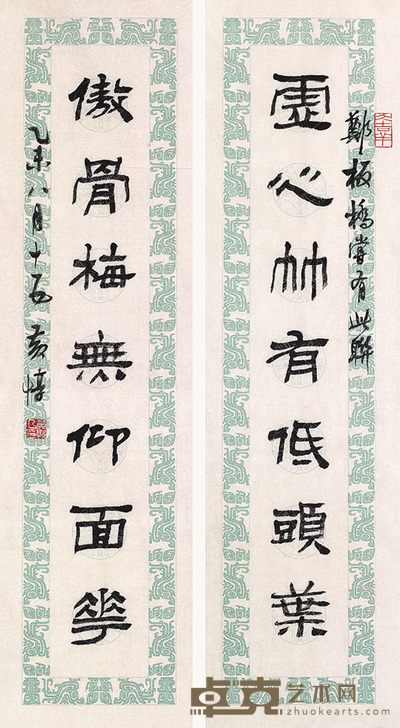 虛心竹有低頭葉
鄭板橋嘗有此聯
傲骨梅無仰面花
乙未八月十五 黃惇
卓克艺术网
www.zhuokearts.com